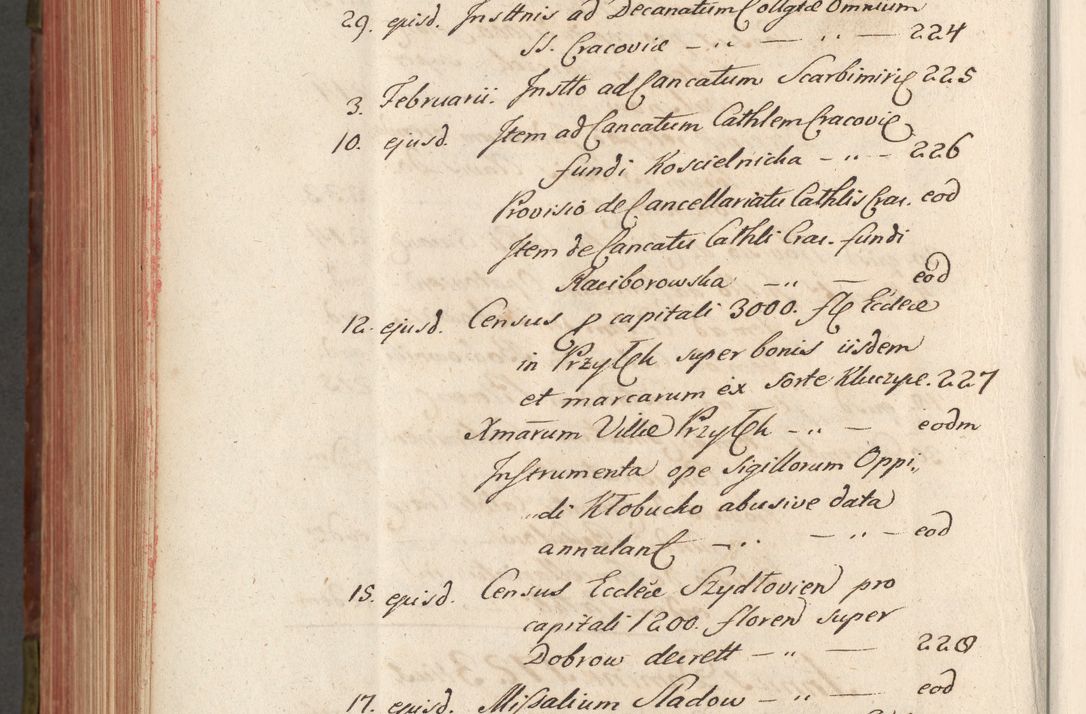 29. ejusd. Insttnis ad Decanatum Collgiæ Omnium
SS. Cracoviæ — „ — „ — 224
3. Februarii. Instto ad Cancatum Scarbimiriæ 225
10. ejusd. Item ad Cancatum Cathlem Cracoviæ
fundi Koscielnicka — „ — 226
Provisio de Cancellariatu Cathlis Crac. eod
Item de Cancatu Cathli Crac. fundi
Raciborowska — „ — eod
12. ejusd. Census p capitali 3000. fl Eccleæ
in Przyłęk super bonis iisdem
et marcarum ex sorte Kluczype. 227
Xmarum Villæ Przyłęk — „ — eodm
Instrumenta ope Sigillorum Oppi„
„di Kłobucko abusive data
annulant — „ — „ — eod
15. ejusd. Census Eccleæ Szydłovien pro
capitali 1200. floren super
Dobrow decrett — „ — 228
17. ejusd. Missalium Sladow — „ — eod